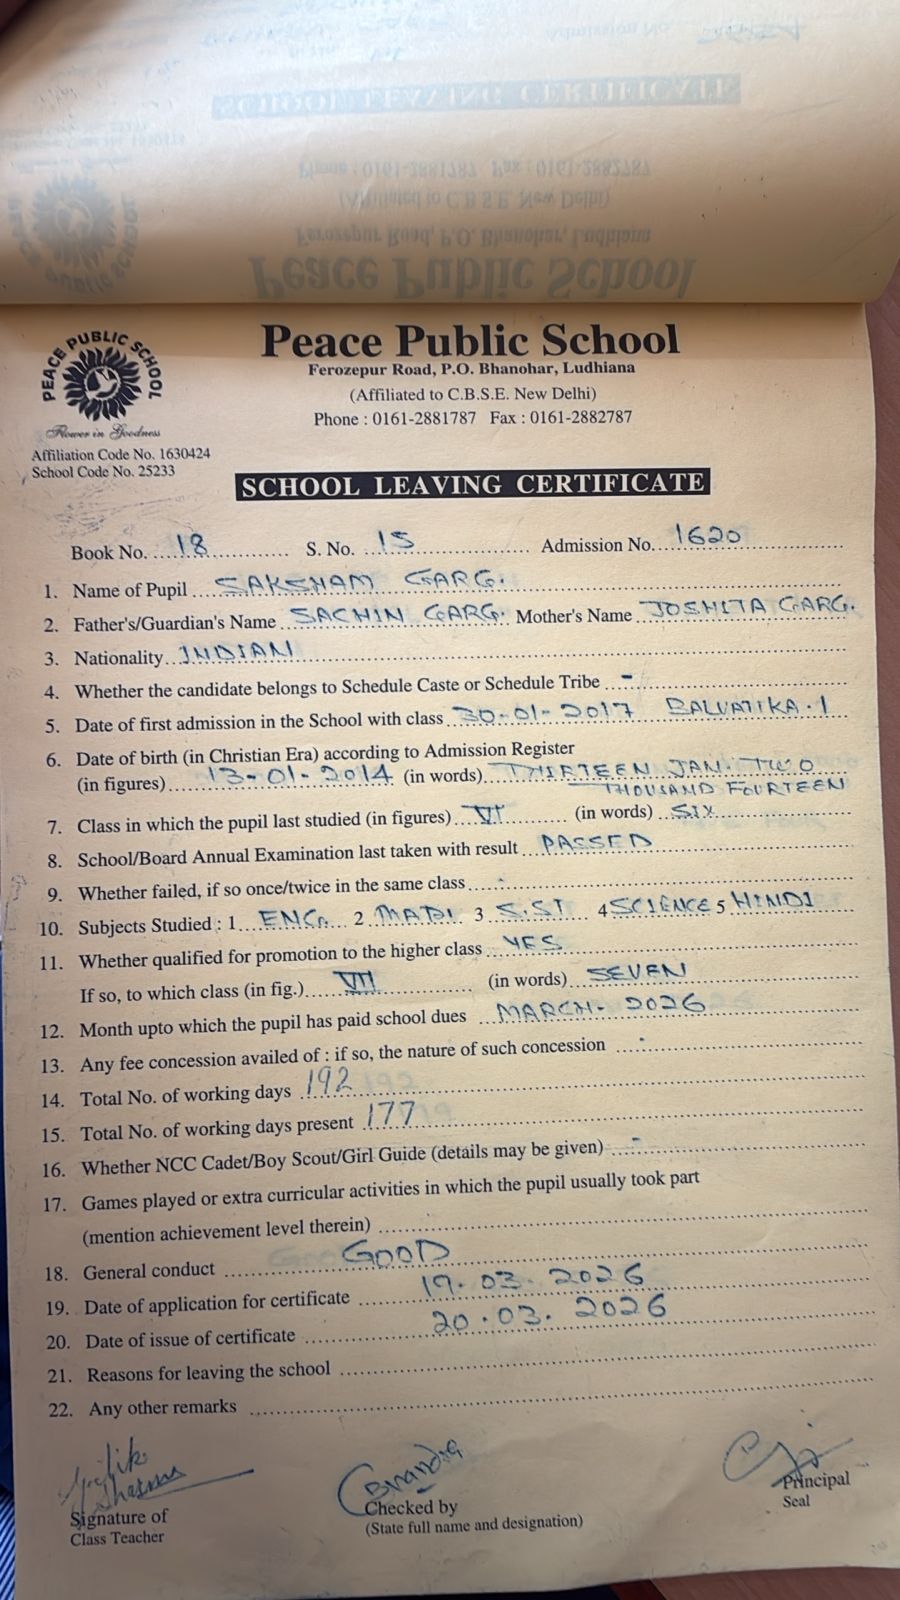 Peace Public School
Ferozepur Road, P.O. Bhanohar, Ludhiana
(Affiliated to C.B.S.E. New Delhi)
Phone : 0161-2881787 Fax : 0161-2882787
PEACE PUBLIC SCHOOL
Flower in Goodness
Affiliation Code No. 1630424
School Code No. 25233
SCHOOL LEAVING CERTIFICATE
Book No. 18 S. No. 15 Admission No. 1620
1. Name of Pupil SAKSHAM GARG.
2. Father's/Guardian's Name SACHIN GARG. Mother's Name JOSHITA GARG.
3. Nationality INDIAN
4. Whether the candidate belongs to Schedule Caste or Schedule Tribe -
5. Date of first admission in the School with class 30-01-2017 BALVATIKA-1
6. Date of birth (in Christian Era) according to Admission Register
(in figures) 13-01-2014 (in words) THIRTEEN JAN. TWO
THOUSAND FOURTEEN
7. Class in which the pupil last studied (in figures) VI (in words) SIX
8. School/Board Annual Examination last taken with result PASSED
9. Whether failed, if so once/twice in the same class -
10. Subjects Studied : 1 ENG. 2 3 S.ST 4 SCIENCE 5 HINDI
11. Whether qualified for promotion to the higher class YES
If so, to which class (in fig.) VII (in words) SEVEN
12. Month upto which the pupil has paid school dues MARCH-2026
13. Any fee concession availed of : if so, the nature of such concession -
14. Total No. of working days 192
15. Total No. of working days present 177
16. Whether NCC Cadet/Boy Scout/Girl Guide (details may be given) -
17. Games played or extra curricular activities in which the pupil usually took part
(mention achievement level therein)
18. General conduct GOOD
19. Date of application for certificate 19.03.2026
20. Date of issue of certificate 20.03.2026
21. Reasons for leaving the school
22. Any other remarks
Sharma
Signature of
Class Teacher
Checked by
(State full name and designation)
Principal
Seal